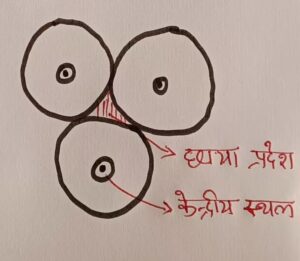 छाया प्रदेश
केन्द्रीय स्थल